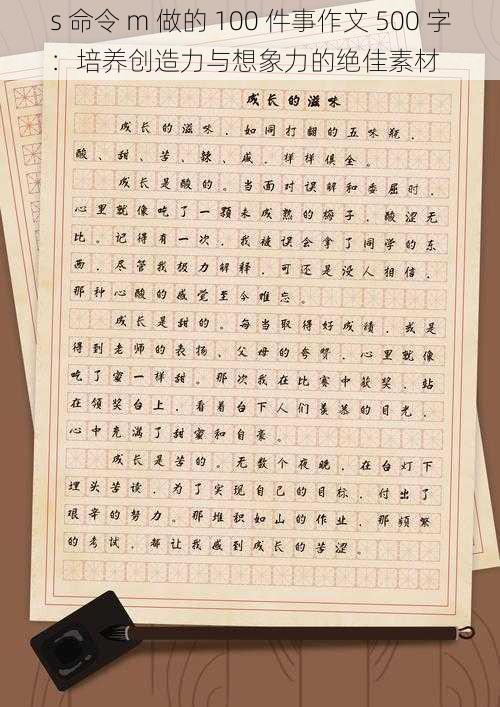 s 命令 m 做的 100 件事作文 500 字
：培养创造力与想象力的绝佳素材
成长的滋味
成长的滋味，如同打翻的五味瓶，
酸、甜、苦、辣、咸，样样俱全。
成长是酸的。当面对误解和委屈时，
心里就像吃了一颗未成熟的梅子，酸涩无
比。记得有一次，我被误会拿了同学的东
西，尽管我极力解释，可还是没人相信，
那种心酸的感觉至今难忘。
成长是甜的。每当取得好成绩，或是
得到老师的表扬、父母的夸赞，心里就像
吃了蜜一样甜。那次我在比赛中获奖，站
在领奖台上，看着台下人们羡慕的目光，
心中充满了甜蜜和自豪。
成长是苦的。无数个夜晚，在台灯下
埋头苦读，为了实现自己的目标，付出了
艰辛的努力。那堆积如山的作业，那频繁
的考试，都让我感到成长的苦涩。